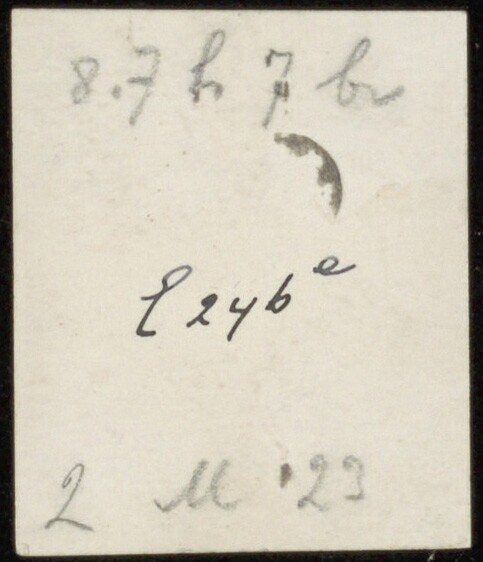 8.7 h 7 br
E 24 b e
2 M 23